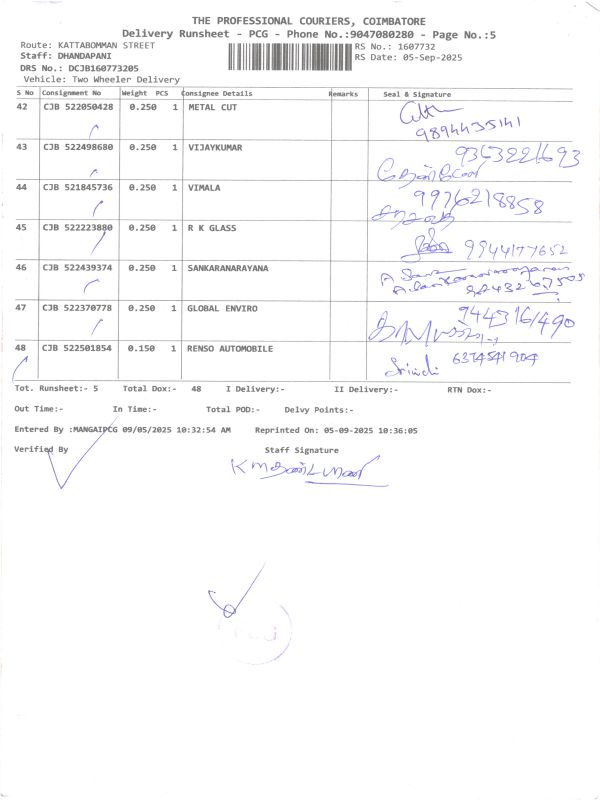 THE PROFESSIONAL COURIERS, COIMBATORE
Delivery Runsheet - PCG - Phone No.:9047080280 - Page No.:5
Route: KATTABOMMAN STREET
RS No.: 1607732
Staff: DHANDAPANI
RS Date: 05-Sep-2025
DRS No.: DCJB160773205
Vehicle: Two Wheeler Delivery
S No Consignment No Weight PCS Consignee Details Remarks Seal & Signature
42 CJB 522050428 0.250 1 METAL CUT
9894435141
43 CJB 522498680 0.250 1 VIJAYKUMAR
9363221693
44 CJB 521845736 0.250 1 VIMALA 9976218858
45 CJB 522223880 0.250 1 R K GLASS
9944177652
46 CJB 522439374 0.250 1 SANKARANARAYANA
A. Sankaranarayanan
47 CJB 522370778 0.250 1 GLOBAL ENVIRO 9443161490
48 CJB 522501854 0.150 1 RENSO AUTOMOBILE
6374541904
Tot. Runsheet:- 5 Total Dox:- 48 I Delivery:- II Delivery:- RTN Dox:-
Out Time:- In Time:- Total POD:- Delvy Points:-
Entered By :MANGAIPCG 09/05/2025 10:32:54 AM Reprinted On: 05-09-2025 10:36:05
Verified By Staff Signature